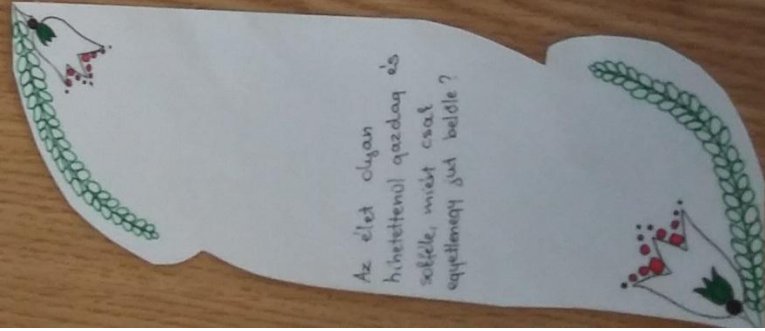 Az élet olyan
hihetetlenül gazdag és
sokféle, miért csak
egyetlenegy jut belőle?